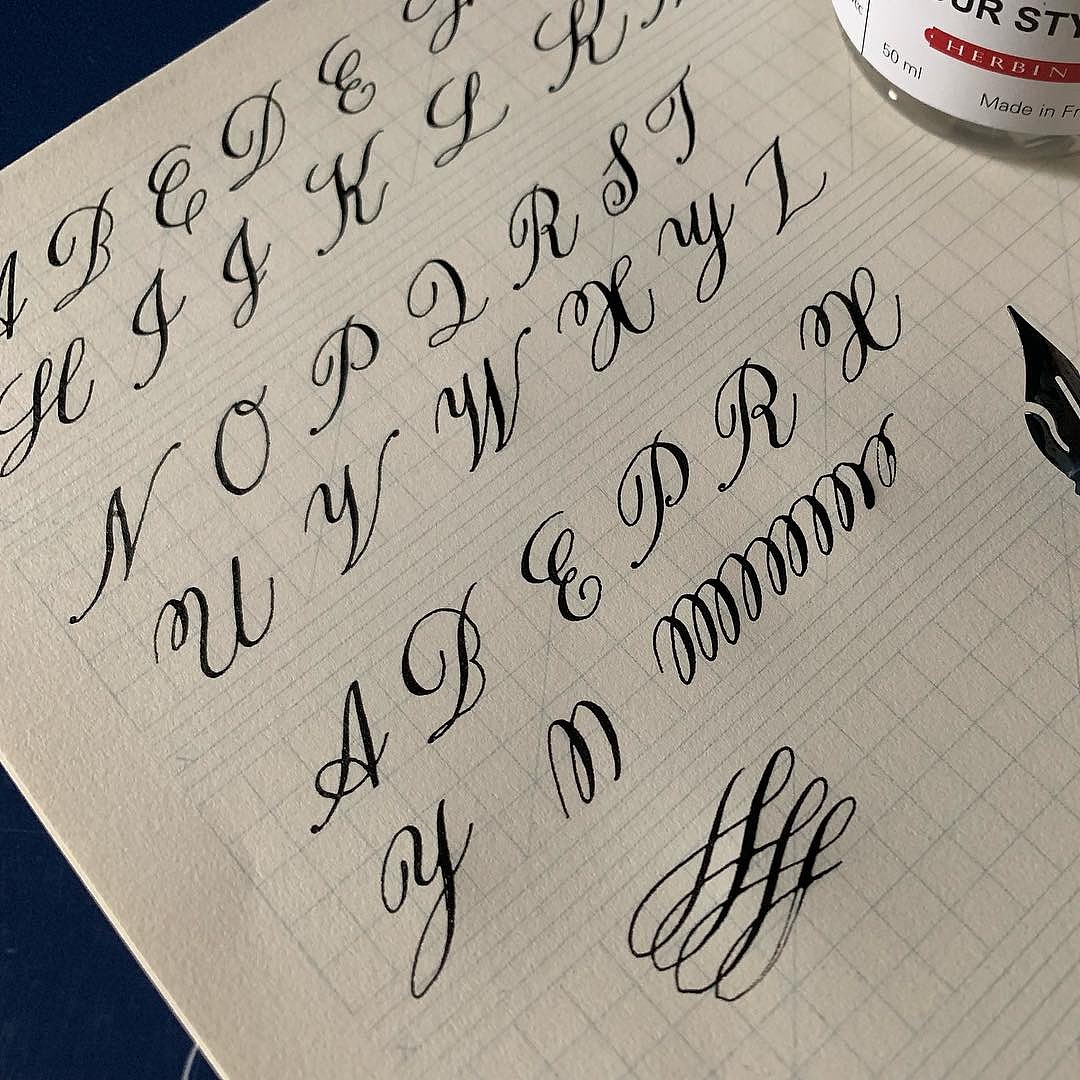 A B C D E
H I J K L K
N O P Q R S T
U V W X Y Z
A B E P R X
Y
HERBIN
50 ml
Made in